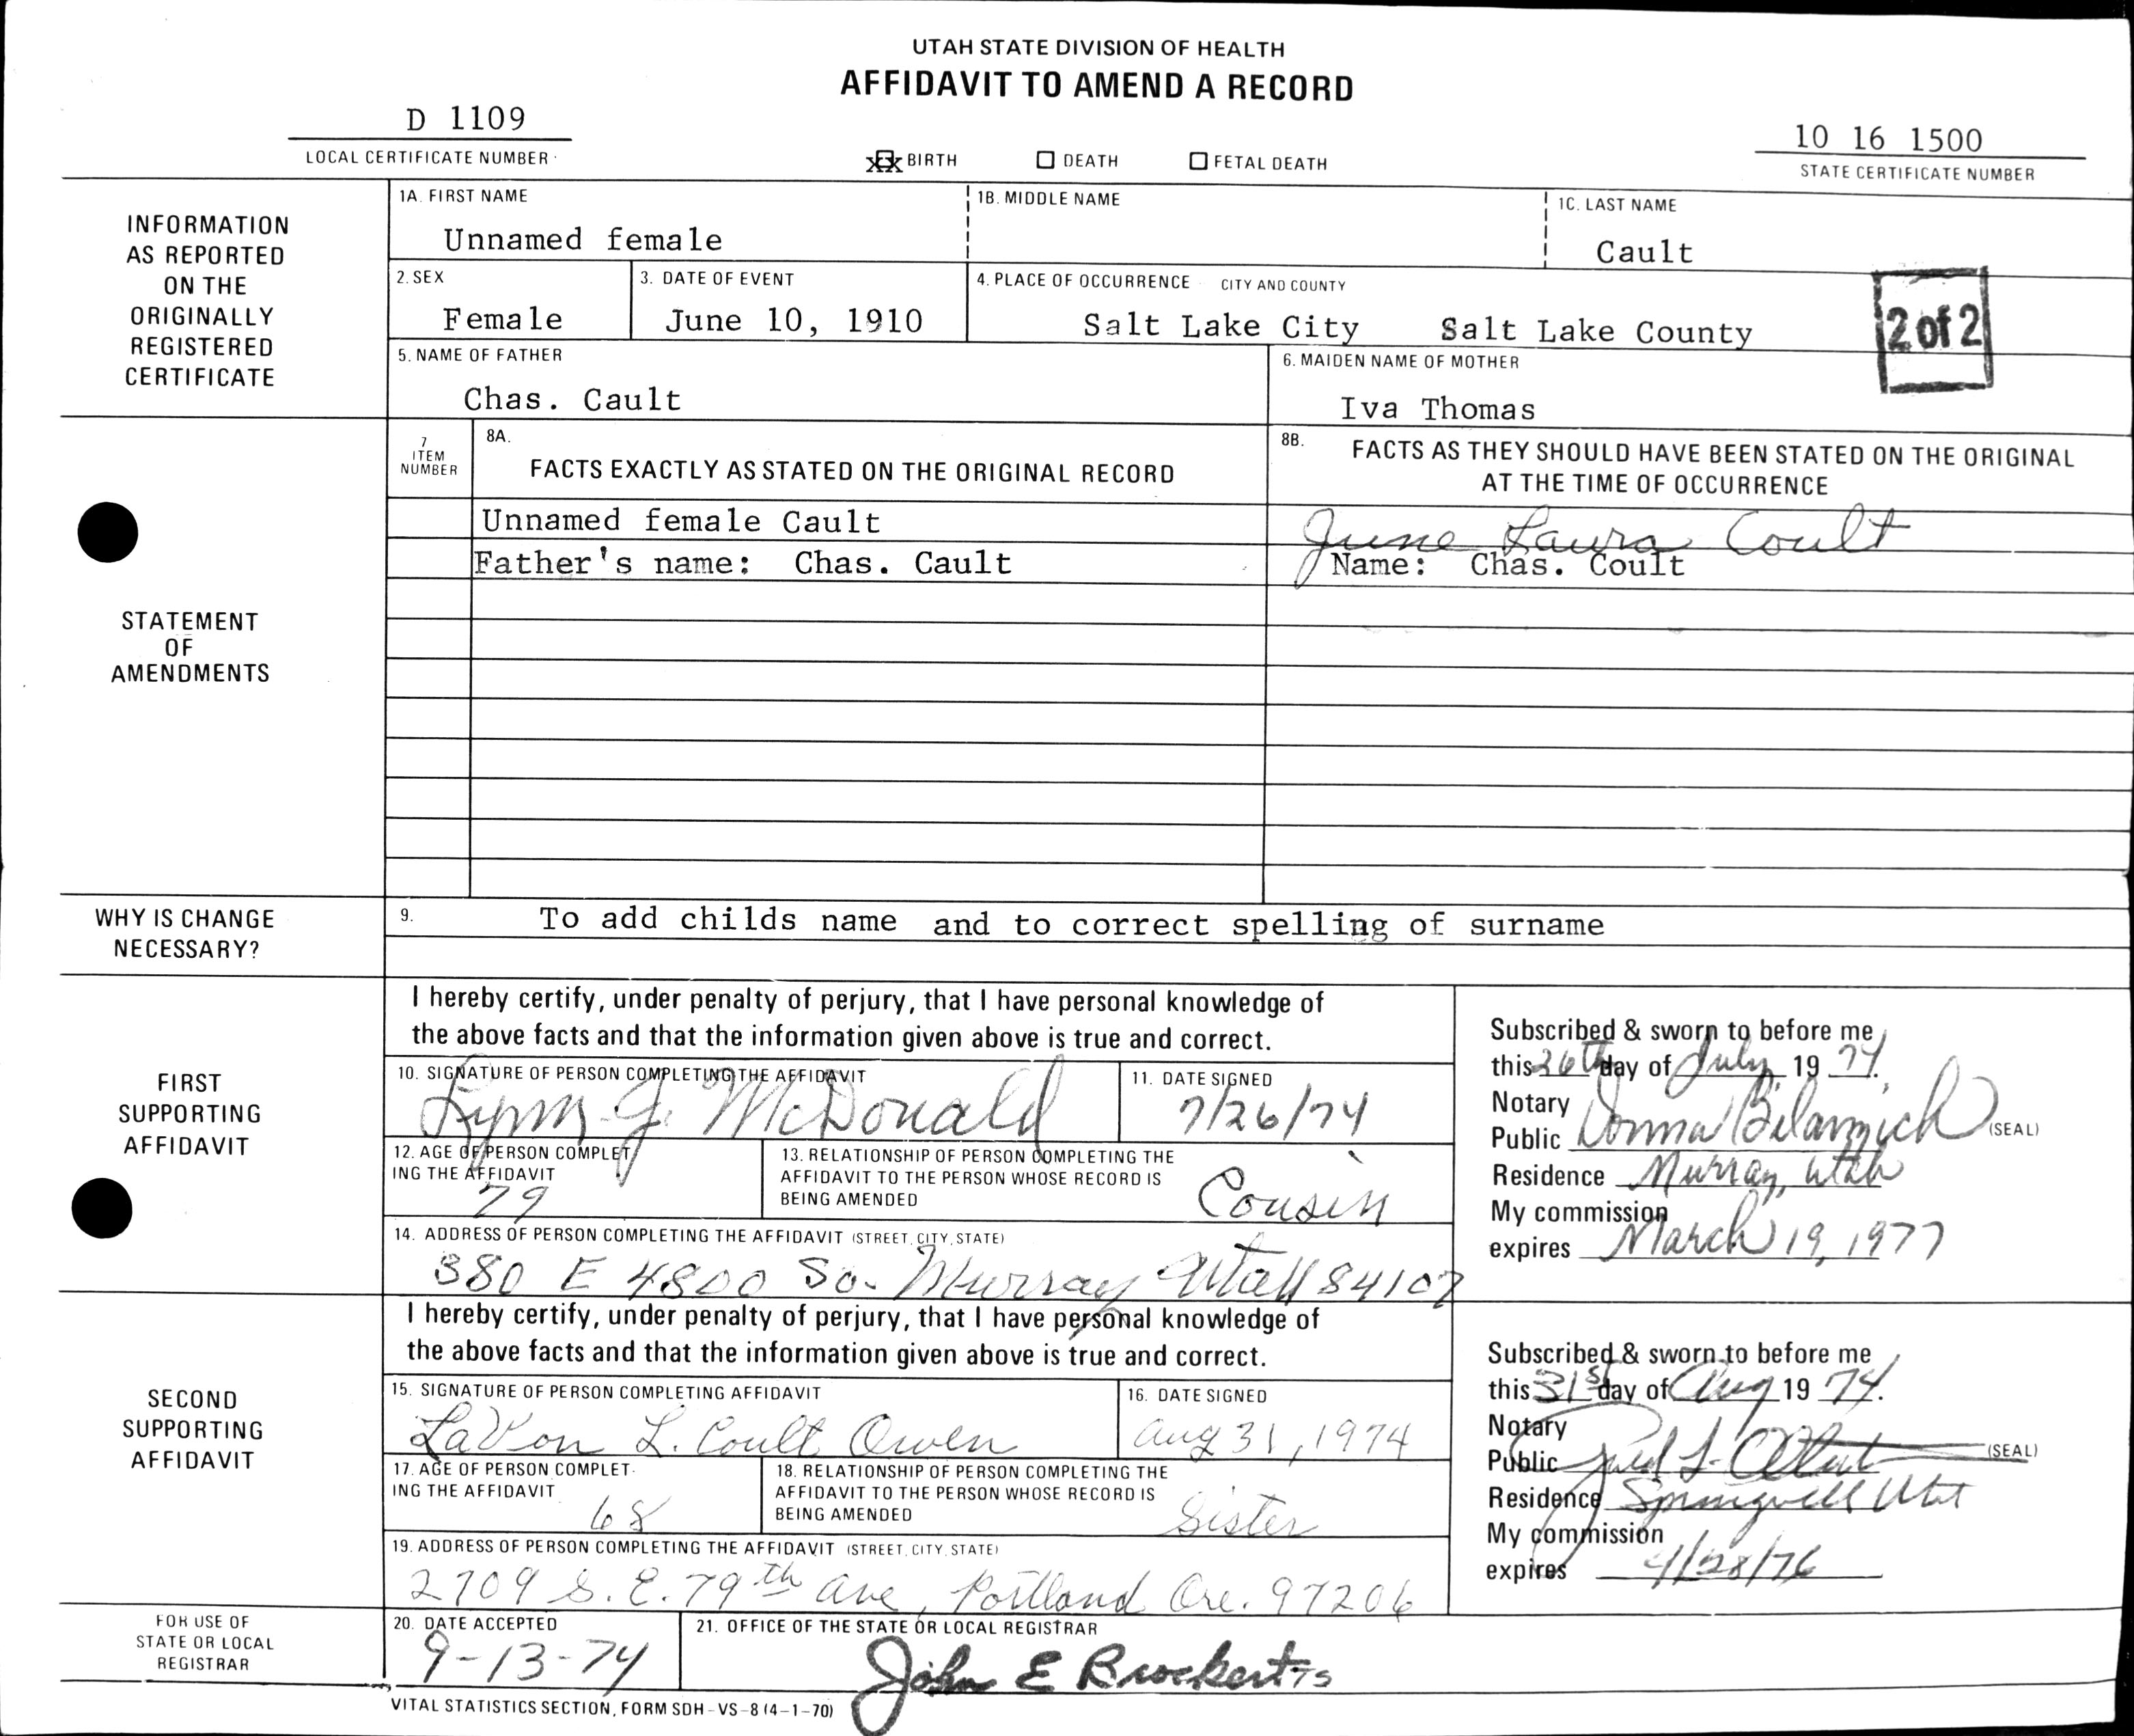 UTAH STATE DIVISION OF HEALTH
AFFIDAVIT TO AMEND A RECORD
D 1109
LOCAL CERTIFICATE NUMBER
XX BIRTH DEATH FETAL DEATH
10 16 1500
STATE CERTIFICATE NUMBER
INFORMATION
AS REPORTED
ON THE
ORIGINALLY
REGISTERED
CERTIFICATE
1A. FIRST NAME 1B. MIDDLE NAME 1C. LAST NAME
Unnamed female Cault
2. SEX 3. DATE OF EVENT 4. PLACE OF OCCURRENCE CITY AND COUNTY
Female June 10, 1910 Salt Lake City Salt Lake County
2 of 2
5. NAME OF FATHER 6. MAIDEN NAME OF MOTHER
Chas. Cault Iva Thomas
STATEMENT
OF
AMENDMENTS
7
ITEM
NUMBER
8A.
FACTS EXACTLY AS STATED ON THE ORIGINAL RECORD
8B. FACTS AS THEY SHOULD HAVE BEEN STATED ON THE ORIGINAL
AT THE TIME OF OCCURRENCE
Unnamed female Cault June Laura Coult
Father's name: Chas. Cault Name: Chas. Coult
WHY IS CHANGE
NECESSARY?
9. To add childs name and to correct spelling of surname
FIRST
SUPPORTING
AFFIDAVIT
I hereby certify, under penalty of perjury, that I have personal knowledge of
the above facts and that the information given above is true and correct.
10. SIGNATURE OF PERSON COMPLETING THE AFFIDAVIT 11. DATE SIGNED
J. McDonald 7/26/74
12. AGE OF PERSON COMPLET-
ING THE AFFIDAVIT
79
13. RELATIONSHIP OF PERSON COMPLETING THE
AFFIDAVIT TO THE PERSON WHOSE RECORD IS
BEING AMENDED
Cousin
14. ADDRESS OF PERSON COMPLETING THE AFFIDAVIT (STREET, CITY, STATE)
380 E 4800 So. Murray Utah 84107
Subscribed & sworn to before me
this 26th day of July 19 74.
Notary
Public Donna (SEAL)
Residence Murray, Utah
My commission
expires March 19, 1977
SECOND
SUPPORTING
AFFIDAVIT
I hereby certify, under penalty of perjury, that I have personal knowledge of
the above facts and that the information given above is true and correct.
15. SIGNATURE OF PERSON COMPLETING AFFIDAVIT 16. DATE SIGNED
LaVon L. Coult Owen Aug 31, 1974
17. AGE OF PERSON COMPLET-
ING THE AFFIDAVIT
68
18. RELATIONSHIP OF PERSON COMPLETING THE
AFFIDAVIT TO THE PERSON WHOSE RECORD IS
BEING AMENDED
Sister
19. ADDRESS OF PERSON COMPLETING THE AFFIDAVIT (STREET, CITY, STATE)
2709 S. E. 79th Ave, Portland Ore. 97206
Subscribed & sworn to before me
this 31st day of Aug 19 74.
Notary
Public (SEAL)
Residence Springville Utah
My commission
expires 4/28/76
FOR USE OF
STATE OR LOCAL
REGISTRAR
20. DATE ACCEPTED 21. OFFICE OF THE STATE OR LOCAL REGISTRAR
9-13-74 John E Brockert TS
VITAL STATISTICS SECTION, FORM SDH-VS-8 (4-1-70)